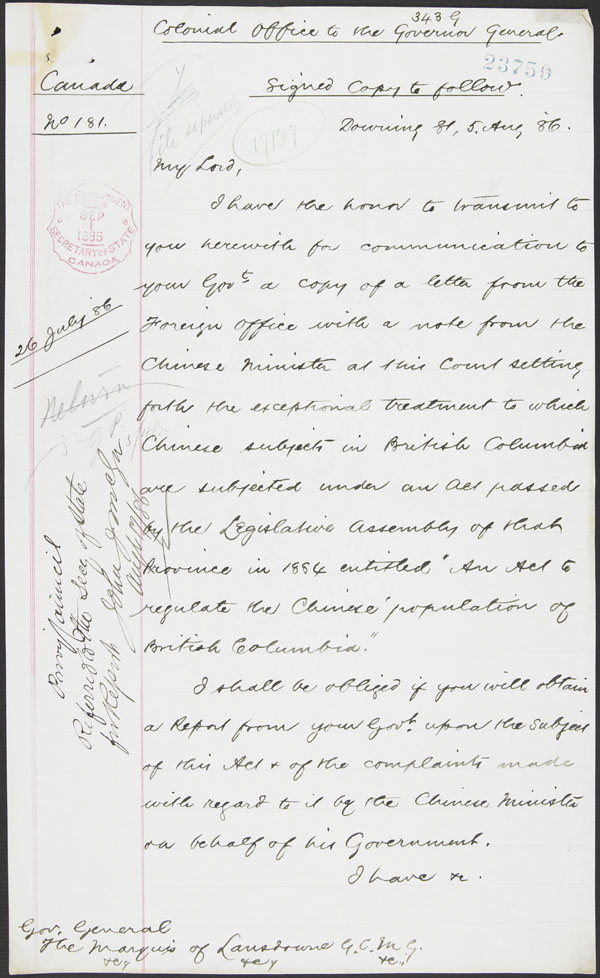 343 G
Colonial Office to the Governor General.
23750
Canada
Signed Copy to follow.
No 181.
17127
Downing St, 5. Aug, 86.
My Lord,
I have the honor to transmit to
you herewith for communication to
your Govt. a copy of a letter from the
Foreign Office with a note from the
Chinese Minister at this Court setting
forth the exceptional treatment to which
Chinese subjects in British Columbia
are subjected under an Act passed
by the Legislative Assembly of that
Province in 1884 entitled "An Act to
regulate the Chinese population of
British Columbia."
I shall be obliged if you will obtain
a Report from your Govt. upon the subject
of this Act & of the complaints made
with regard to it by the Chinese Minister
on behalf of his Government.
I have &c.
THE DEPARTMENT
SEP
1
1886
SECRETARY OF STATE
CANADA
26 July 86
Privy Council
Referred to the Secy of State
for Report
Gov. General
The Marquis of Lansdowne G.C.M.G.
&c, &c, &c,